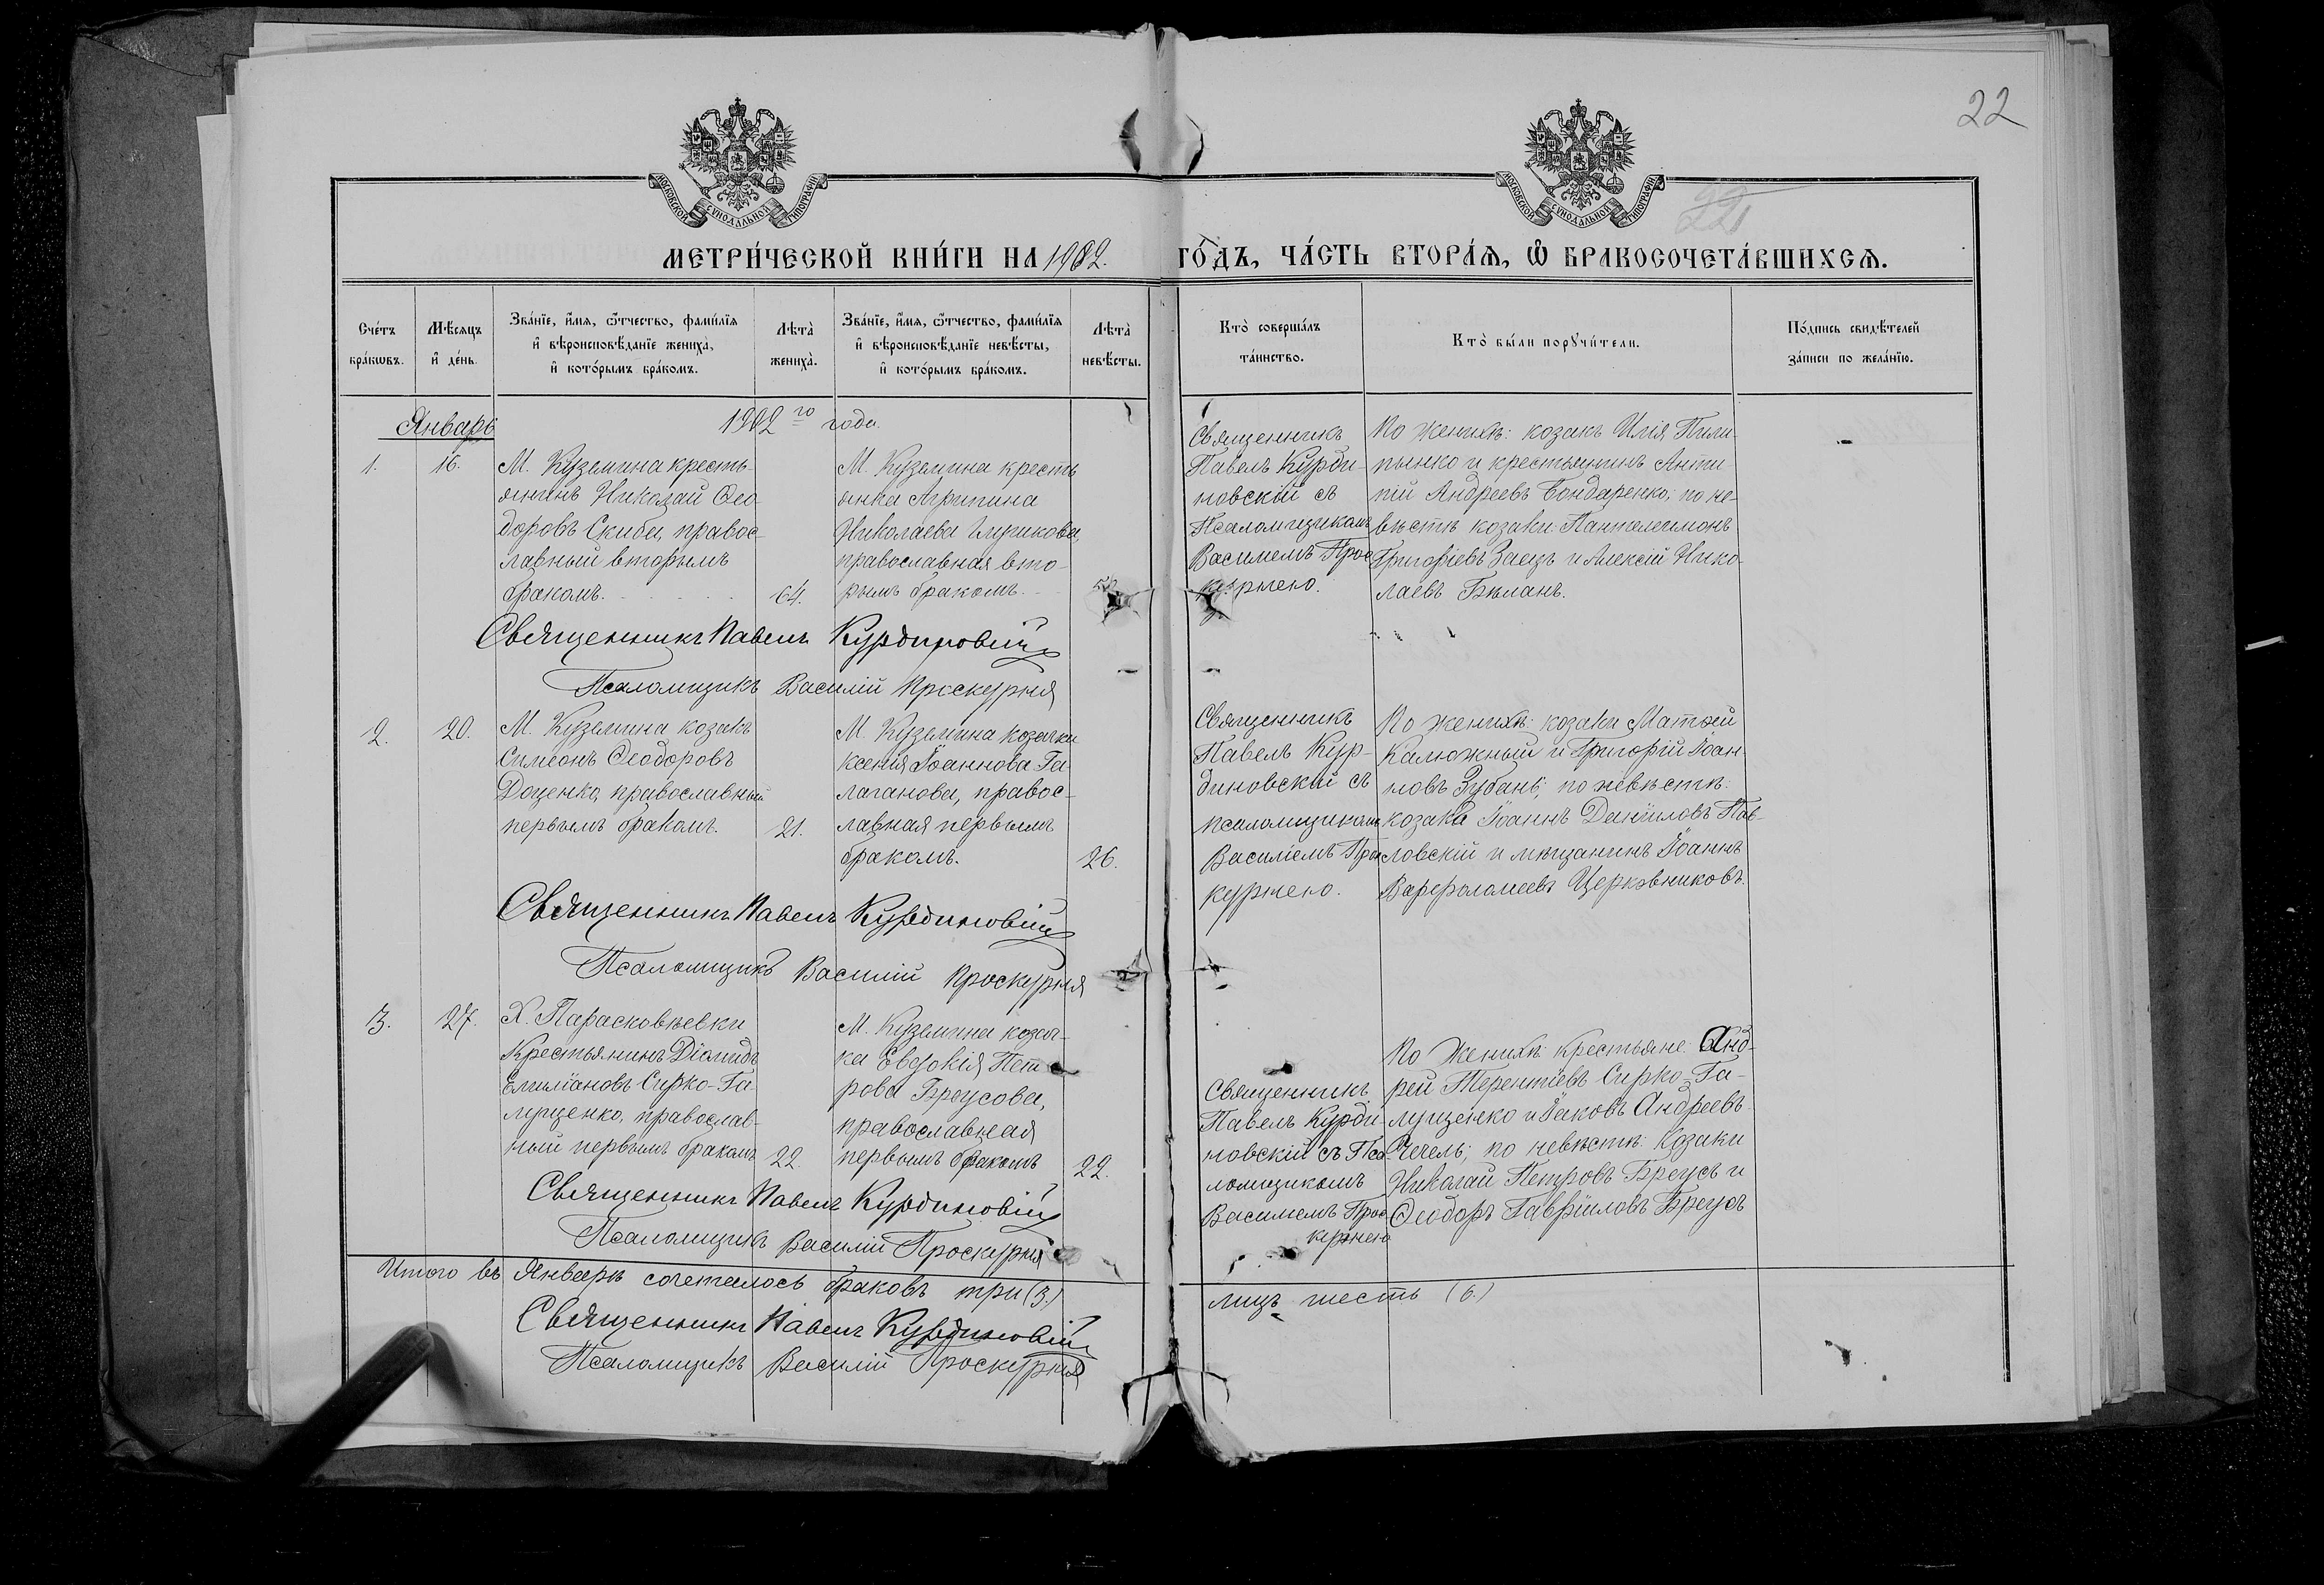 22
МОСКОВСКОЙ СѴНОДАЛЬНОЙ ТИПОГРАФІИ
МОСКОВСКОЙ СѴНОДАЛЬНОЙ ТИПОГРАФІИ
МЕТРИ́ЧЕСКОЙ КНИ́ГИ НА 1902. ГО́ДЪ, ЧА́СТЬ ВТОРА́Ѧ, Ѡ БРАКОСОЧЕТА́ВШИХСѦ.
Сче́тъ бра́кѡвъ.
Мѣ́сѧцъ и҆ де́нь.
Зва́нїе, и҆́мѧ, ѻ҆́тчество, фами́лїѧ и҆ вѣроисповѣ́данїе жениха̀, и҆ кото́рымъ бра́комъ.
Лѣта̀ жениха̀.
Зва́нїе, и҆́мѧ, ѻ҆́тчество, фами́лїѧ и҆ вѣроисповѣ́данїе невѣ́сты, и҆ кото́рымъ бра́комъ.
Лѣта̀ невѣ́сты.
Кто̀ соверша́лъ та́инство.
Кто̀ бы́ли порꙋчи́тели.
По́дпись свидѣ́телей за́писи по жела́нїю.
Январь 1902го года
1.
16.
М. Куземина кресть-
янинъ Николай Ѳео-
доровъ Скиба, правос-
лавный вторымъ
бракомъ.
64.
М. Куземина кресть
янка Агрипина
Николаева
православная вто-
рымъ бракомъ.
Священникъ
Павелъ Курди-
новскій съ
Псаломщикомъ
Василіемъ Прос
курнею.
По женихѣ: козакъ Илія Пили-
пенко и крестьянинъ Анти
пій Андреевъ Бондаренко; по не-
вѣстѣ козаки: Пантелеимонъ
Григоріевъ Заецъ и Алексій Нико-
лаевъ Бѣланъ.
Священникъ Павелъ Курдиновскій
Псаломщикъ Василій Проскурня
2.
20.
М. Куземина козакъ
Симеонъ Ѳеодоровъ
Доценко, православный
первымъ бракомъ.
21.
М. Куземина козачка
Ксенія Іоаннова Га-
лаганова, правос-
лавная первымъ
бракомъ.
26.
Священникъ
Павелъ Кур-
диновскій съ
псаломщикомъ
Василіемъ Прос
курнею.
По женихѣ: козаки Матѳей
Калюжный и Григорій Іоан-
новъ Зубань; по невѣстѣ:
козака Іоаннъ Даніиловъ Пав-
ловскій и мѣщанинъ Іоаннъ
Варфоломеевъ Церковниковъ.
Священникъ Павелъ Курдиновскій
Псаломщикъ Василій Проскурня
3.
27.
Х. Парасковѣевки
Крестьянинъ Діомидъ
Емиліановъ Сирко-Га-
лущенко, православ-
ный первымъ бракомъ
22.
М. Куземина козач-
ка Евдокія Пет
рова Бреусова,
православная
первымъ бракомъ
22.
Священникъ
Павелъ Курди-
новскій съ Пса
ломщикомъ
Василіемъ Прос
курнею
По женихѣ: крестьяне: Анд-
рей Терентіевъ Сирко-Га-
лущенко и Іаковъ Андреевъ
Чечель; по невѣстѣ: Козаки
Николай Петровъ Бреусъ и
Ѳеодоръ Гавріиловъ Бреусъ
Священникъ Павелъ Курдиновскій
Псаломщикъ Василій Проскурня
Итого въ Январѣ сочеталось браковъ три (3.) лицъ шесть (6.)
Священникъ Павелъ Курдиновскій
Псаломщикъ Василій Проскурня